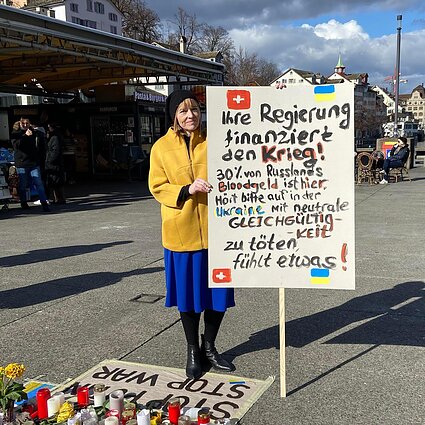 Ihre Regierung
finanziert
den Krieg!
30% von Russlands
Bloodgeld ist hier.
Hört bitte auf in der
Ukraine mit neutrale
GLEICHGÜLTIG-
KEIT
zu töten,
fühlt etwas!
STOP WAR
STOP